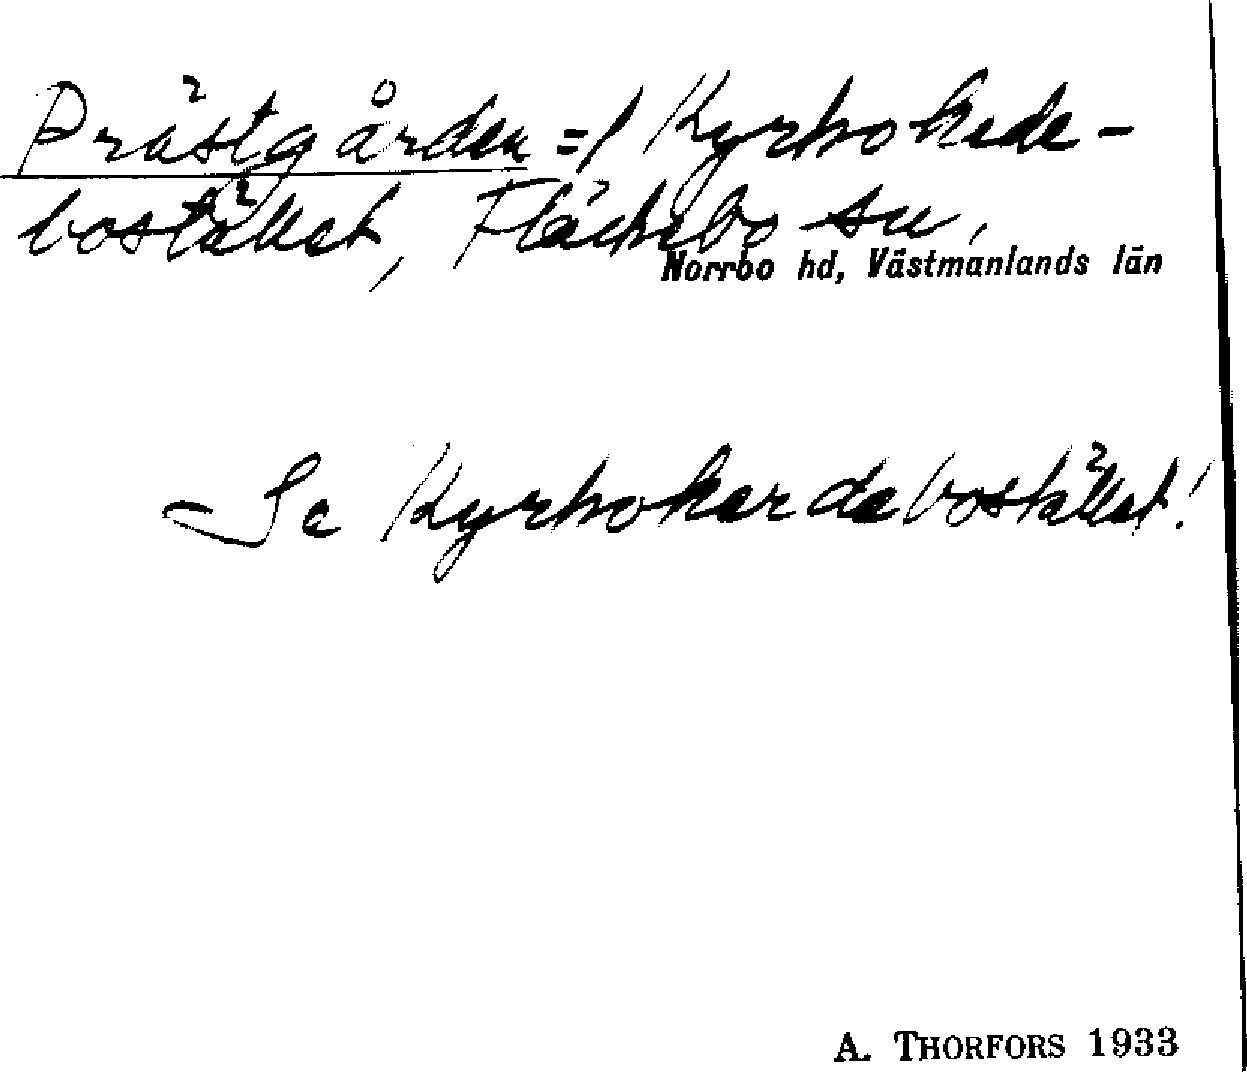 Prästgården = / Kyrkoherde-
bostället, Fläckebo sn,
Norrbo hd, Västmanlands län
Se Kyrkoherdebostället!
A. THORFORS 1933